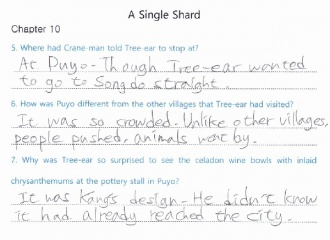 A Single Shard
Chapter 10
5. Where had Crane-man told Tree-ear to stop at?
At Puyo - Though Tree-ear wanted
to go to Songdo straight.
6. How was Puyo different from the other villages that Tree-ear had visited?
It was so crowded. Unlike other villages,
people pushed, animals went by.
7. Why was Tree-ear so surprised to see the celadon wine bowls with inlaid
chrysanthemums at the pottery stall in Puyo?
It was Kang's design - He didn't know
it had already reached the city.